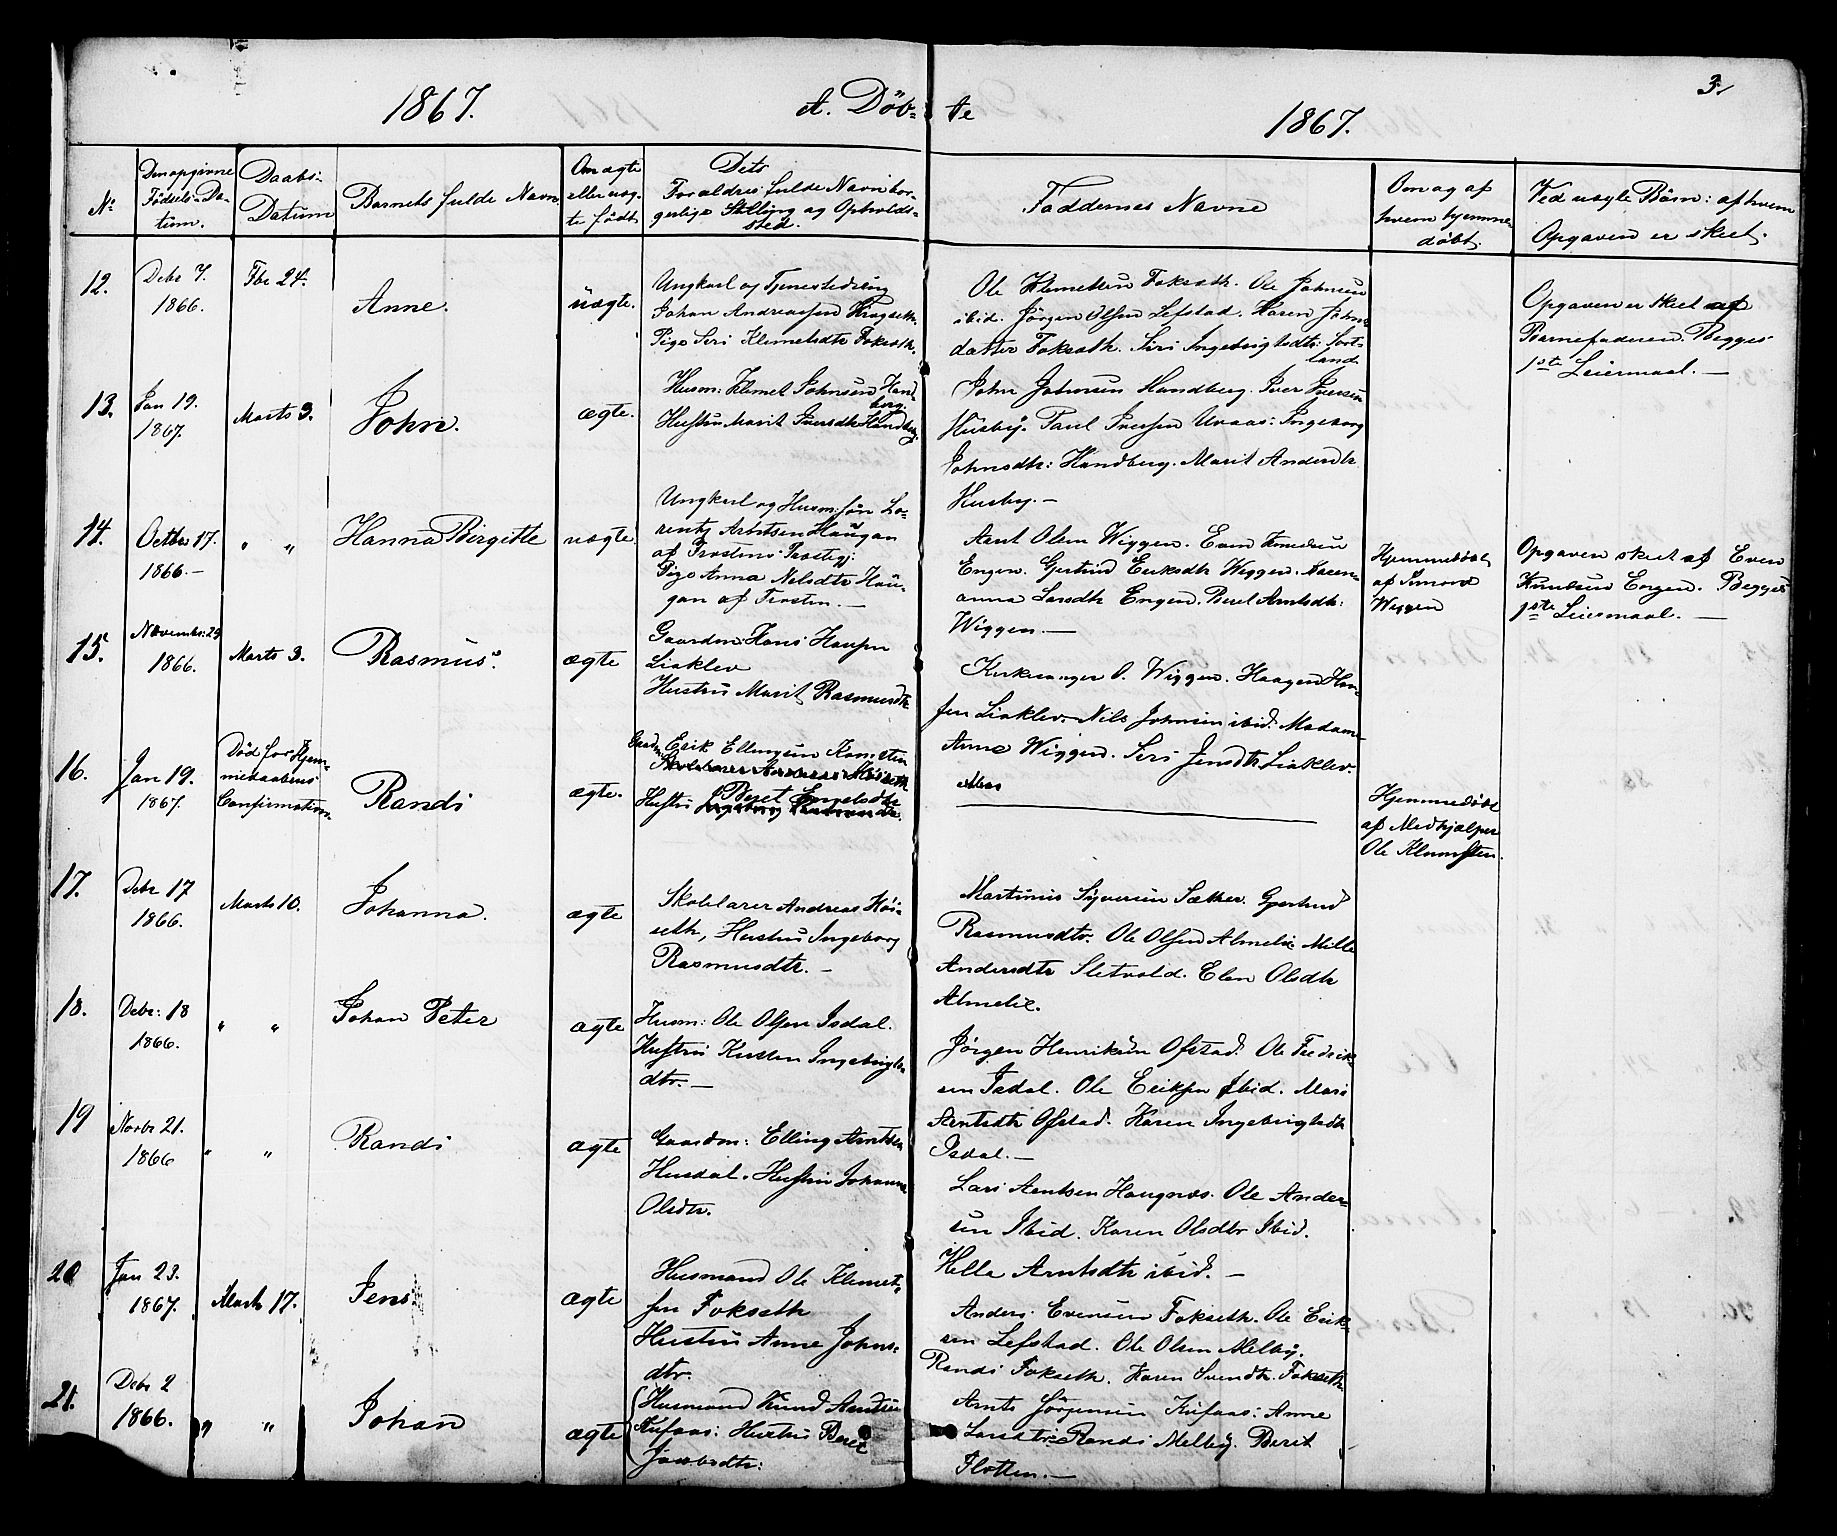 3/
1867.
A. Döb-
te
1867.
No
Den opgivne Fødsels-Da-tum.
Daabs-Datum
Barnets fulde Navn
Om ægte eller uæg-te født.
Dets Forældres fulde Navn bor-gerlige Stilling og Opholds-sted.
Faddernes Navne
Om og af hvem hjemme-døbt.
Ved uægte Børn: af hvem Opgaven er skeet.
12.
Debr 7.
1866.
Fbr 24.
Anne.
uægte.
Ungkarl og Tjenestedreng
Johan Andreassen Kragseth.
Pige Seri Klemetsdtr Fokseth.
Ole Klemetsen Fokseth. Ole Johnsen
ibid. Jörgen Olsen Lefstad. Karen Johns
datter Fokseth. Siri Ingebrigtsdtr: Sort-
land.
Opgaven er skeet af
Barnefaderen. Begges
1ste Leiermaal. —
13.
Jan 19.
1867.
Marts 3.
John.
ægte.
Husm: Klemet Johnsen Hand-
berg.
Hustru Marit Iversdtr Handberg
John Johnsen Handberg. Iver Iversen
Husby. Paul Iversen Uvaas: Ingeborg
Johnsdtr: Handberg. Marit Andersdtr
Husby. —
14.
Octbr 17.
1866. —
" "
Hanna Birgitte
uægte.
Ungkarl og Husm: søn Lo-
rentz Arntsen Haugan
af Frosten
Pige Anna Nilsdtr Hau-
gan af Frosten. —
Arnt Olsen Wiggen. Even Knudsen
Engen. Gertrud Eriksdtr Wiggen. Karen-
anna Larsdtr Engen. Beret Arntsdtr:
Wiggen. —
Hjemmedöbt
af Simon
Wiggen
Opgaven skeet af Even
Knudsen Engen. Begges
1ste Leiermaal. —
15.
November: 29
1866.
Marts 3.
Rasmus.
ægte
Gaardm: Hans Hansen
Liaklev
Hustru Marit Rasmusdtr
Kirkesanger O. Wiggen. Haagen Han-
sen Liaklev. Nils Johnsen ibid. Madam
Anne Wiggen. Seri Jensdtr Liaklev.
16.
Jan 19.
1867.
Död for Hjem-
medaabens
Confirmation.
Randi
ægte.
Gaardm: Erik Ellingsen
Skolelærer Andreas Höiseth
Hustru Beret Engelsdtr
Ingeborg Rasmusdtr.
Hjemmedöbt
af Medhjælper
Ole Klumsten.
17.
Debr 17
1866.
Marts 10.
Johanna.
ægte
Skolelærer Andreas Höi-
seth, Hustru Ingeborg
Rasmusdtr. —
Martinus Syversen Sæther. Gjertrud
Rasmusdtr. Ole Olsen Almelie. Mille
Andersdtr Sletvold. Elen Olsdtr
Almelie.
18.
Debr: 18
1866.
" "
Johan Peter
ægte
Husm: Ole Olsen Isdal.
Hustru Kirsten Ingebrigts
dtr. —
Jörgen Henriksen Ofstad. Ole Fredrik-
sen Isdal. Ole Eriksen Ibid. Mari
Arntsdtr Ofstad. Karen Ingebrigtsdtr
Isdal. —
19
Novbr 21.
1866
" "
Randi
ægte
Gaardm: Elling Arntsen
Husdal. Hustru Johanna
Olsdtr.
Lars Arntsen Haugnæs. Ole Ander-
sen Ibid. Karen Olsdtr Ibid.
Helle Arntsdtr ibid. —
20
Jan 23.
1867.
Marts 17.
Jens
ægte
Husmand Ole Klemet-
sen Fokseth
Hustru Anne Johns-
dtr.
Anders Evensen Fokseth. Ole Erik-
sen Lefstad. Ole Olsen Melby.
Randi Fokseth. Karen Svendtr. Fokseth
21.
Debr 2
1866.
" "
Johan
ægte
Husmand Knud Arntsen
Kufaas: Hustru Beret
Jacobsdtr:
Arnt Jörgensen Kufaas: Anne
Larsdtr: Randi Melby. Berit
Flotten. —